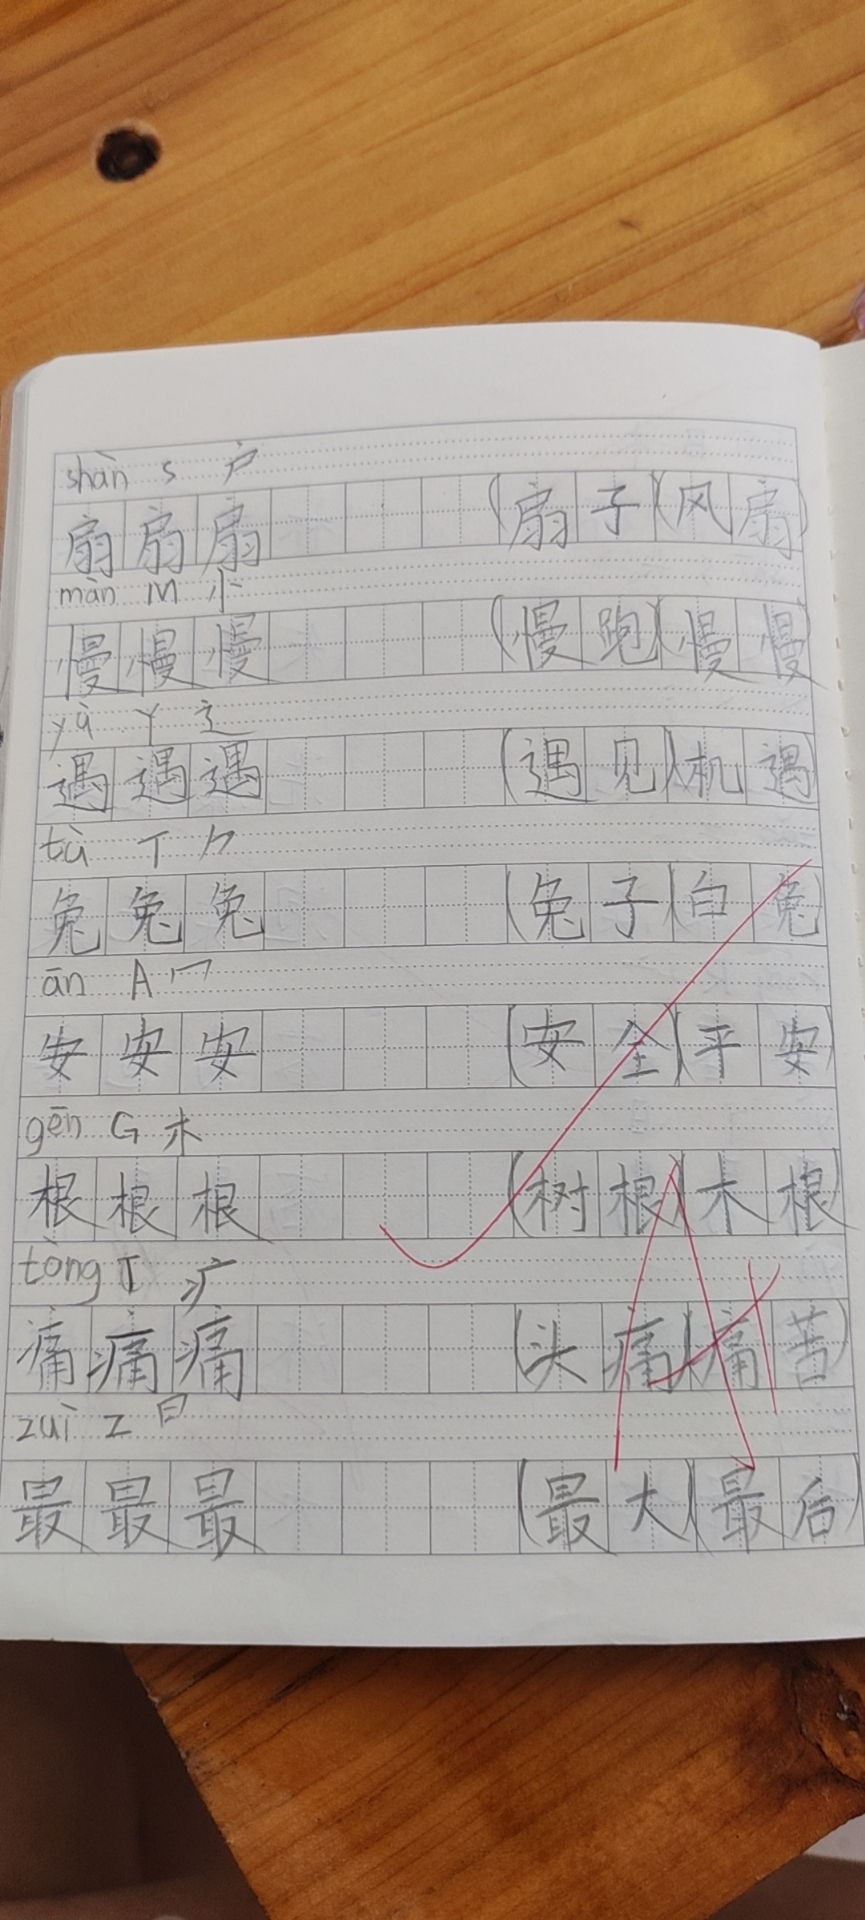 shàn s 户
扇扇扇(扇子)(风扇)
màn M 忄
慢慢慢(慢跑)(慢慢)
yù Y 辶
遇遇遇(遇见)(机遇)
tù T ⺈
兔兔兔(兔子)(白兔)
ān A 冖
安安安(安全)(平安)
gēn G 木
根根根(树根)(木根)
tòng T 疒
痛痛痛(头痛)(痛苦)
zuì Z 曰
最最最(最大)(最后)
A+